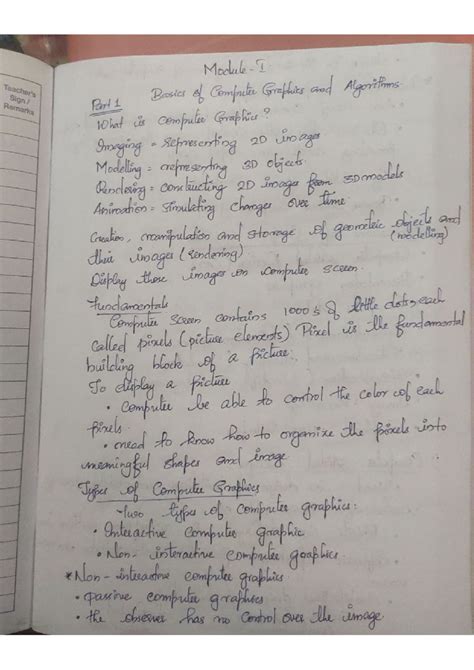 Teacher's
Sign /
Remarks
Module - I
Part 1 Basics of Computer Graphics and Algorithms
What is Computer Graphics?
Imaging = representing 2D images
Modelling = representing 3D objects
Rendering = constructing 2D images from 3D models
Animation = Simulating changes over time
Creation, manipulation and storage of geometric objects and
(modelling)
their images (rendering)
Display these images on computer screen.
Fundamentals
Computer Screen contains 1000's of little dots; each
called pixels (picture elements) Pixel is the fundamental
building block of a picture.
To display a picture
• Computer be able to control the color of each
pixels.
• need to know how to organize the pixels into
meaningful shapes and image.
Types of Computer Graphics
Two types of computer graphics:
• Interactive computer graphic
• Non - interactive computer graphics
* Non - interactive computer graphics
• passive computer graphics
• the observer has no control over the image.